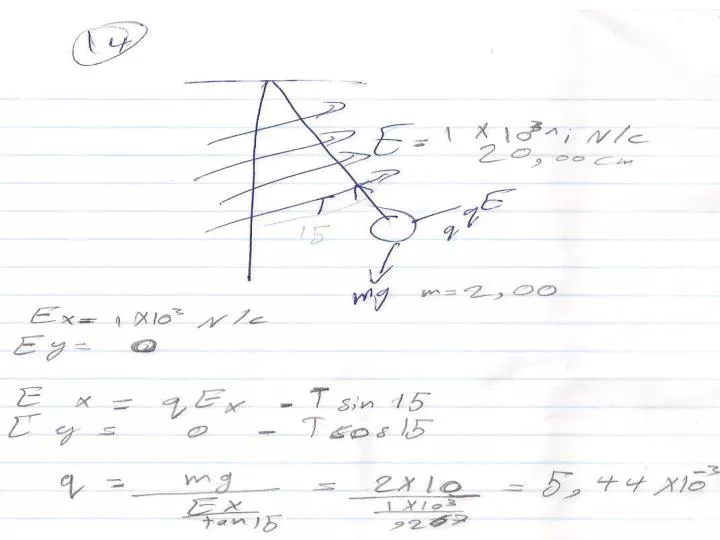 14
E = 1 x 10³ î N/C
20,00 cm
T
15
qE
q
mg m = 2,00
Ex = 1 x 10³ N/C
Ey = 0
Σ x = qEx - T sin 15
Σ y = 0 - T cos 15
q = mg / (Ex / tan 15) = 2 x 10 / (1 x 10³ / ) = 5,44 x 10⁻³